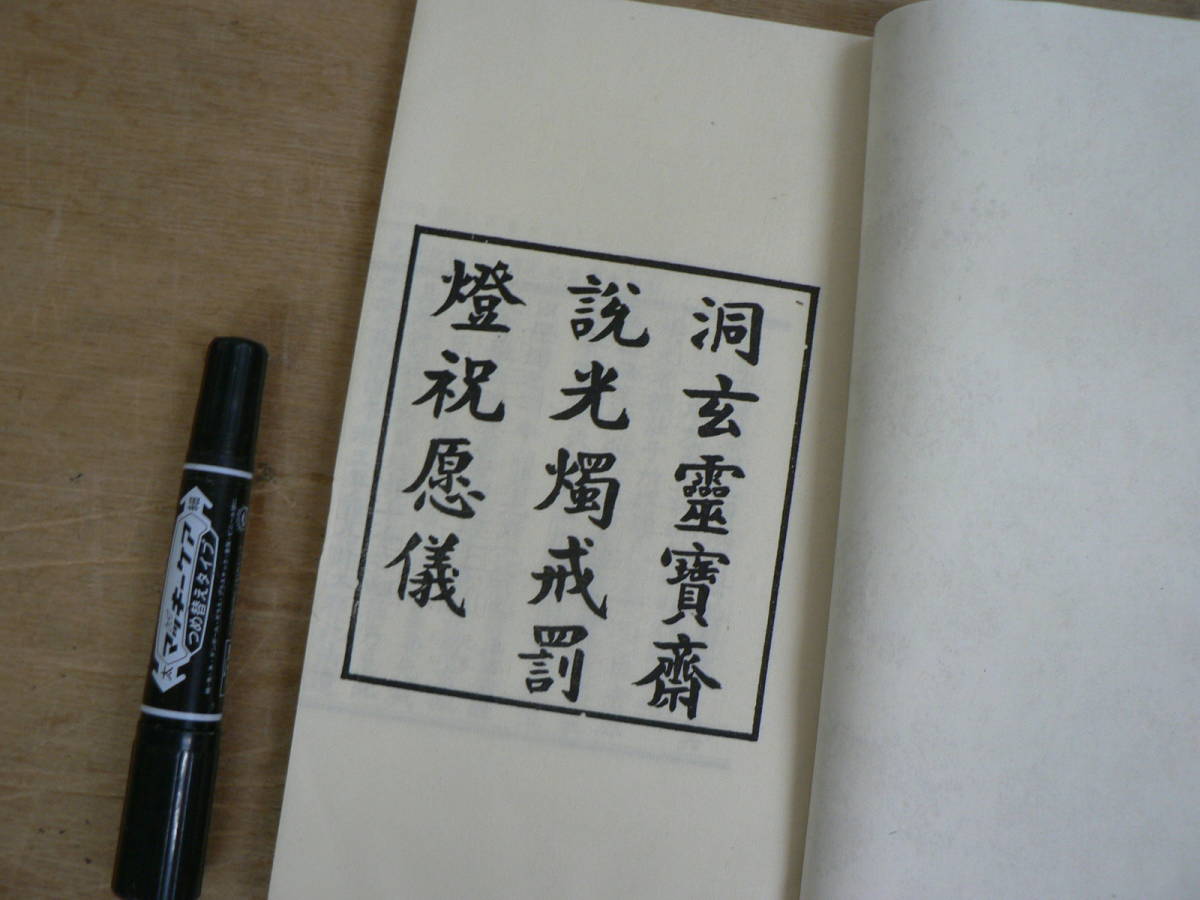 洞玄靈寶齋
說光燭戒罰
燈祝愿儀
細
マッキーケア
つめ替えタイプ
太